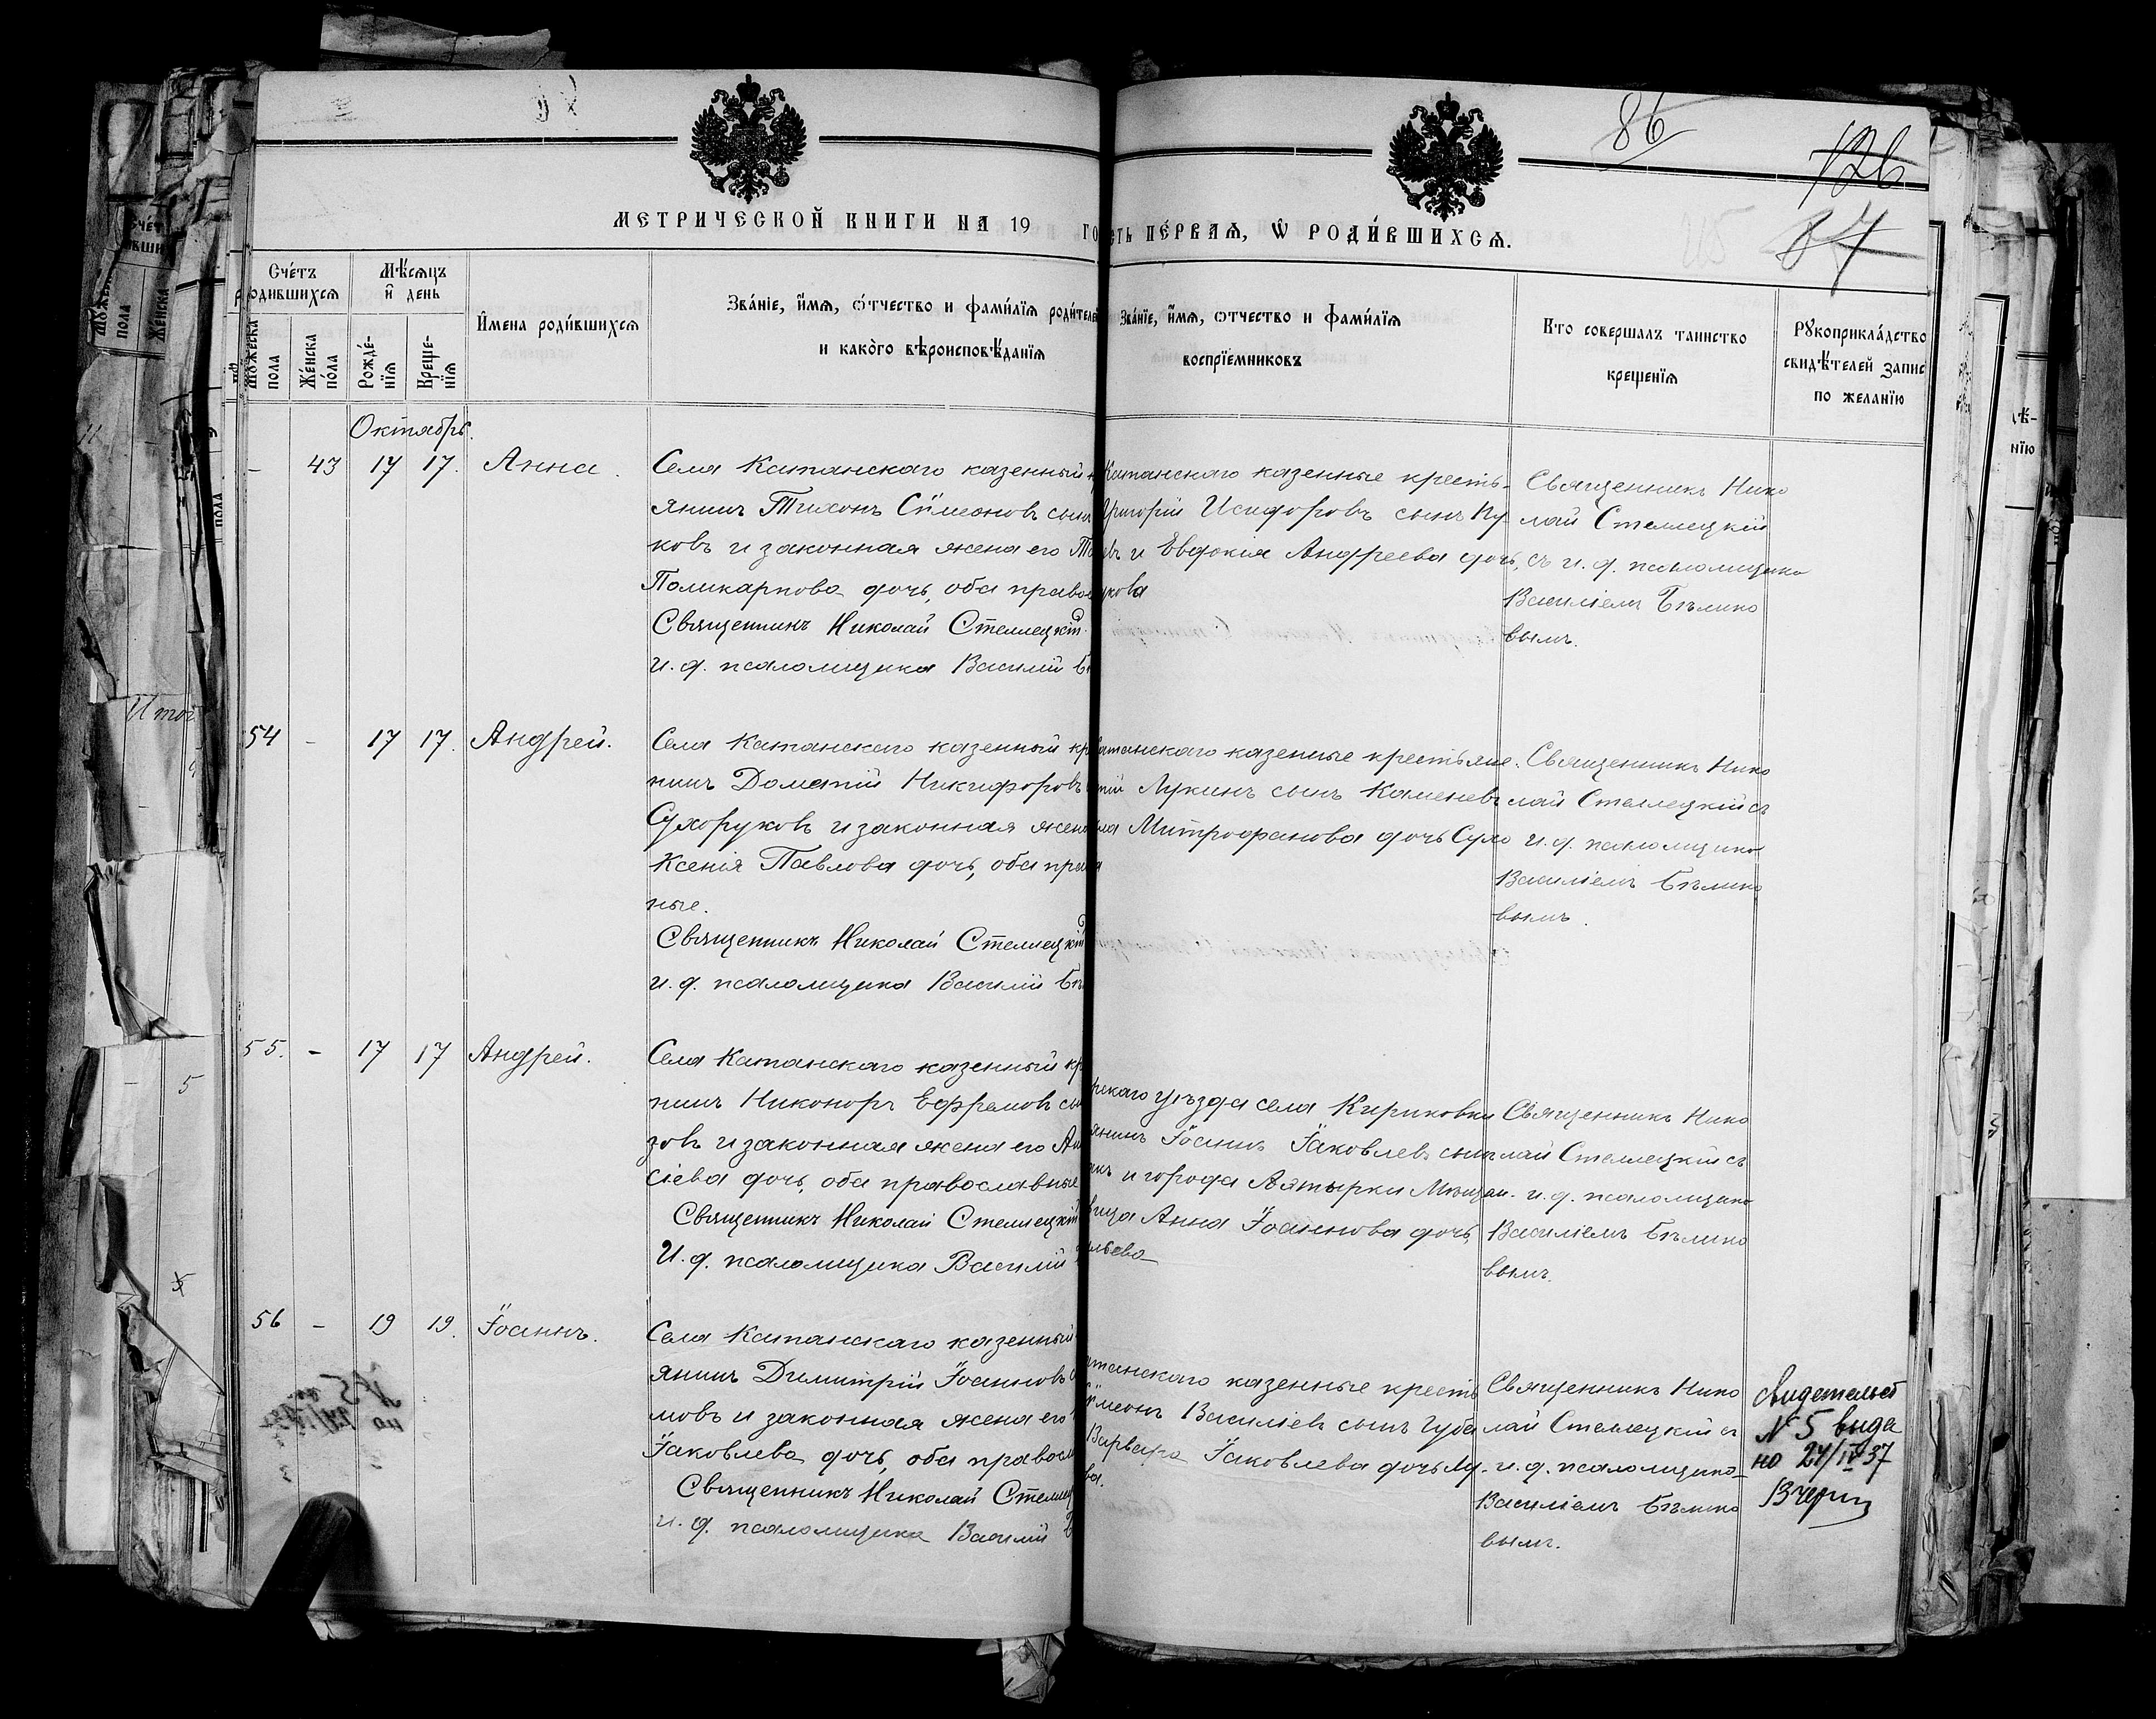 86
126
87
МЕТРИЧЕСКОЙ КНИГИ НА 19
ГО
СТЬ ПЕ́РВАѦ, Ѡ РОДИ́ВШИХСѦ.
Сче́тъ родившихсѧ
Мѣ́сѧцъ и҆ день
И҆мена роди́вшихсѧ
Зва́нїе, и҆́мѧ, ѻ҆́тчество и фами́лїѧ роди́телей
и како̀го вѣроисповѣ́данїѧ
Зва́нїе, и҆́мѧ, ѻтчество и фами́лїѧ
воспрїемниковъ
Кто совершалъ таинство
крещенїѧ
Рꙋкоприкла́дство
свидѣтелей запис
по желанїю
Мꙋ́жеска пола
Же́нска по́ла
Рожде́-нїѧ
Креще-нїѧ
Октябрь.
- 43 17 17. Анна.
Села Катанскаго казенный
янинъ Тихонъ Сѵмеоновъ сынъ
ковъ и законная жена его
Поликарпова дочь, оба право
Священникъ Николай Стеллецкій
и. д. псаломщика Василій
Катанскаго казенные кресть-
Григорій Исидоровъ сынъ Пу
евъ и Евдокія Андреева дочь,
укова
Священникъ Нико
лай Стеллецкій
съ и. д. псаломщика
Василіемъ Бѣлико
вымъ.
54 - 17 17. Андрей.
Села Катанскаго казенный кр
нинъ Дометій Никифоровъ
Сухоруковъ и законная жена
Ксенія Павлова дочь, оба прав
ные.
Священникъ Николай Стеллецкій
и. д. псаломщика Василій Бѣ
атанскаго казенные крестьяне.
Лукинъ сынъ Каменевъ
Митрофанова дочь Сухо
Священникъ Нико
лай Стеллецкій съ
и. д. псаломщика
Василіемъ Бѣлико
вымъ.
55. - 17 17 Андрей.
Села Катанскаго казенный кр
нинъ Никоноръ Ефремовъ сы
зовъ и законная жена его
сіева дочь, оба православные
Священникъ Николай Стеллецкій
И. д. псаломщика Василій
рскаго уѣзда села Кириковки
янинъ Іоаннъ Іаковлевъ сынъ
и города Ахтырки Мѣщан-
Анна Іоаннова дочь
Священникъ Нико
лай Стеллецкій съ
и. д. псаломщика
Василіемъ Бѣлико
вымъ.
56 - 19 19. Іоаннъ.
Села Катанскаго казенный
янинъ Димитрій Іоанновъ
мовъ и законная жена его
Іаковлева дочь, оба правосл
Священникъ Николай Стеллец
и. д. псаломщика Василій
атанскаго казенные кресть
Сѵмеонъ Василіевъ сынъ Губа
Варвара Іаковлева дочь
ва.
Священникъ Нико
лай Стеллецкій съ
и. д. псаломщика
Василіемъ Бѣлико
вымъ.
Свидетельст
№ 5 выда
но 24/IV 37